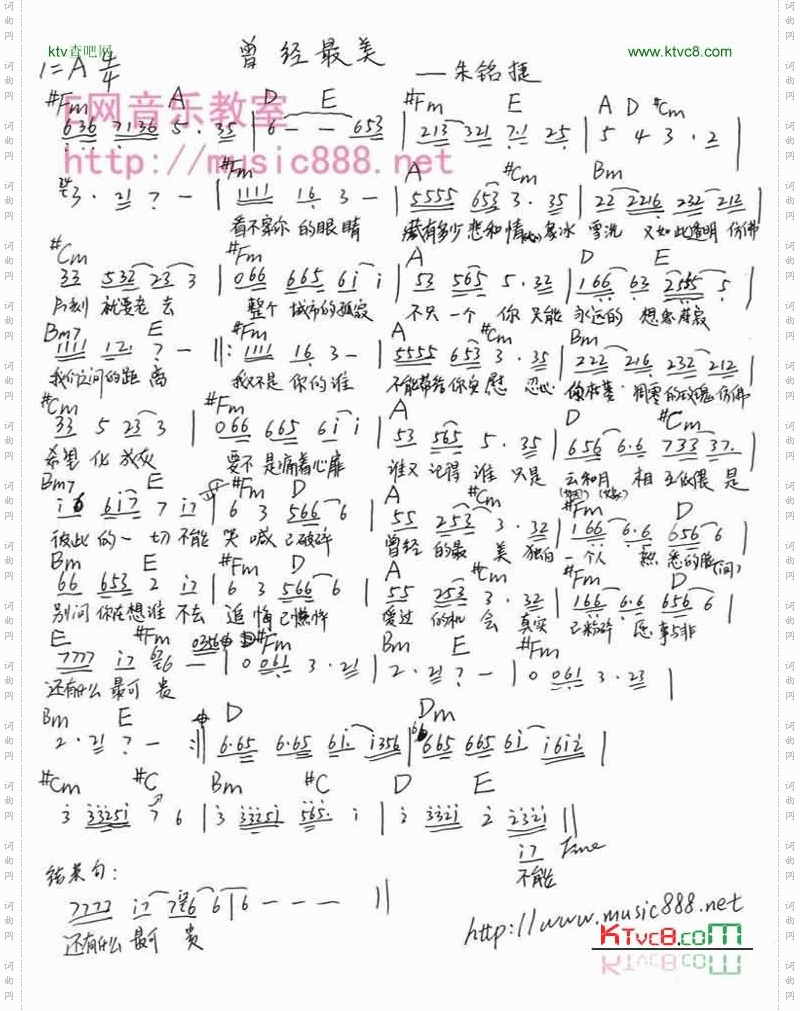 ktv查吧网
www.ktvc8.com
曾经最美
1=A 4/4
——朱铭捷
E网音乐教室
http://music888.net
#Fm A D E #Fm E A D #Cm
636 7136 5· 35 | 6 - - 653 | 213 321 7·1 25 | 5 4 3· 2 |
#Fm A #Cm Bm
3· 21 7 - | 1111 16 3 - | 5555 653 3· 35 | 22 2216 232 212 |
看不穿你的眼睛 藏有多少悲和情 像冰雪洗 又如此透明 仿佛
#Cm #Fm A D E
33 532 23 3 | 066 665 61 1 | 53 565 5· 32 | 166 63 2555 5 |
片刻就要老去 整个城市的孤寂 不只一个你 只能永远的想象
Bm7 E #Fm A #Cm Bm
1111 121 7 - ||: 1111 16 3 - | 5555 653 3 35 | 222 216 232 212 |
我们之间的距离 我又不是你的谁 不能带给你安慰 忍心 凋零的玫瑰 仿佛
#Cm #Fm A D #Cm
33 5 23 3 | 066 665 61 1 | 53 565 5· 35 | 656 6·6 733 37· |
希望化成灰 要不是痛着心扉 谁又记得谁 只是云和月 相互依偎 是
Bm7 E #Fm D A #Cm #Fm D
16 617 7 17 | 6 3 566 6 | 55 253 3· 32 | 166 6·6 656 6 |
彼此的一切 不能哭喊已破碎 曾经的最美 独自一个人 熟悉的
Bm E #Fm D A #Cm #Fm D
66 653 2 17 | 6 3 566 6 | 55 253 3· 32 | 166 6·6 656 6 |
别问你在想谁 不去追悔已憔悴 爱过的机会 真实已粉碎 人事与非
E #Fm #Fm Bm E #Fm
7777 17 6 - | 0 061 3· 21 | 2· 21 7 - | 0 061 3· 23 |
还有什么最可贵
Bm E D Dm
2· 21 7 - :|| 6·65 6·65 61· 1356 | 665 665 61 1612 |
#Cm #C Bm #C D E
3 33251 7 6 | 3 33251 565· 1 | 2 3321 2 2321 ||
17 Fine
不能
结束句:
7777 17 6 6 | 6 - - - ||
还有什么最可贵
http://www.music888.net
KTvc8.com
词曲网